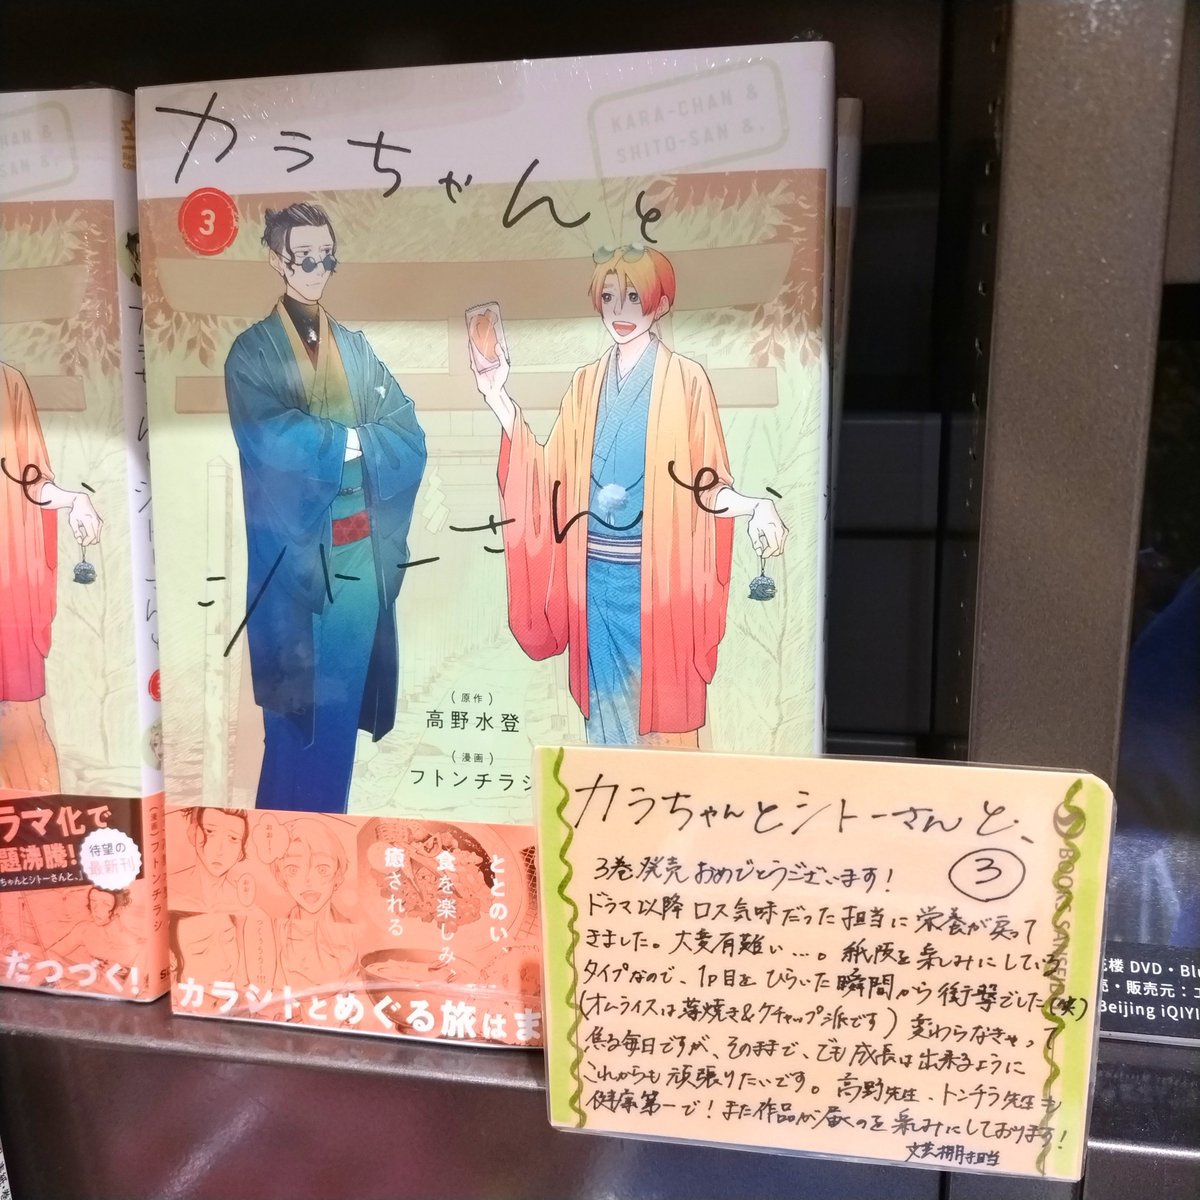 KARA-CHAN &
SHITO-SAN &.
カラちゃんと
シトーさんと、
3
(原作)
高野水登
(漫画)
フトンチラシ
ととのい、
食を楽しみ、
癒される
カラシトとめぐる旅はま
ラマ化で
題沸騰!
ちゃんとシトーさんと、』
待望の
最新刊
だつづく!
カラちゃんとシトーさんと、
3
3巻発売おめでとうございます!
ドラマ以降ロス気味だった担当に栄養が戻って
きました。大変有難い…。紙版を楽しみにしている
タイプなので、1p目をひらいた瞬間から衝撃でした(笑)
(オムライスは薄焼き&ケチャップ派です) 変わらなきゃって
焦る毎日ですが、そのままで、でも成長は出来るように
これからも頑張りたいです。高野先生、トンチラ先生も
健康第一で!また作品が届くのを楽しみにしております!
文芸棚担当
BOOKS SANSEIDO
花楼 DVD・Blu
売・販売元:エ
Beijing iQIYI